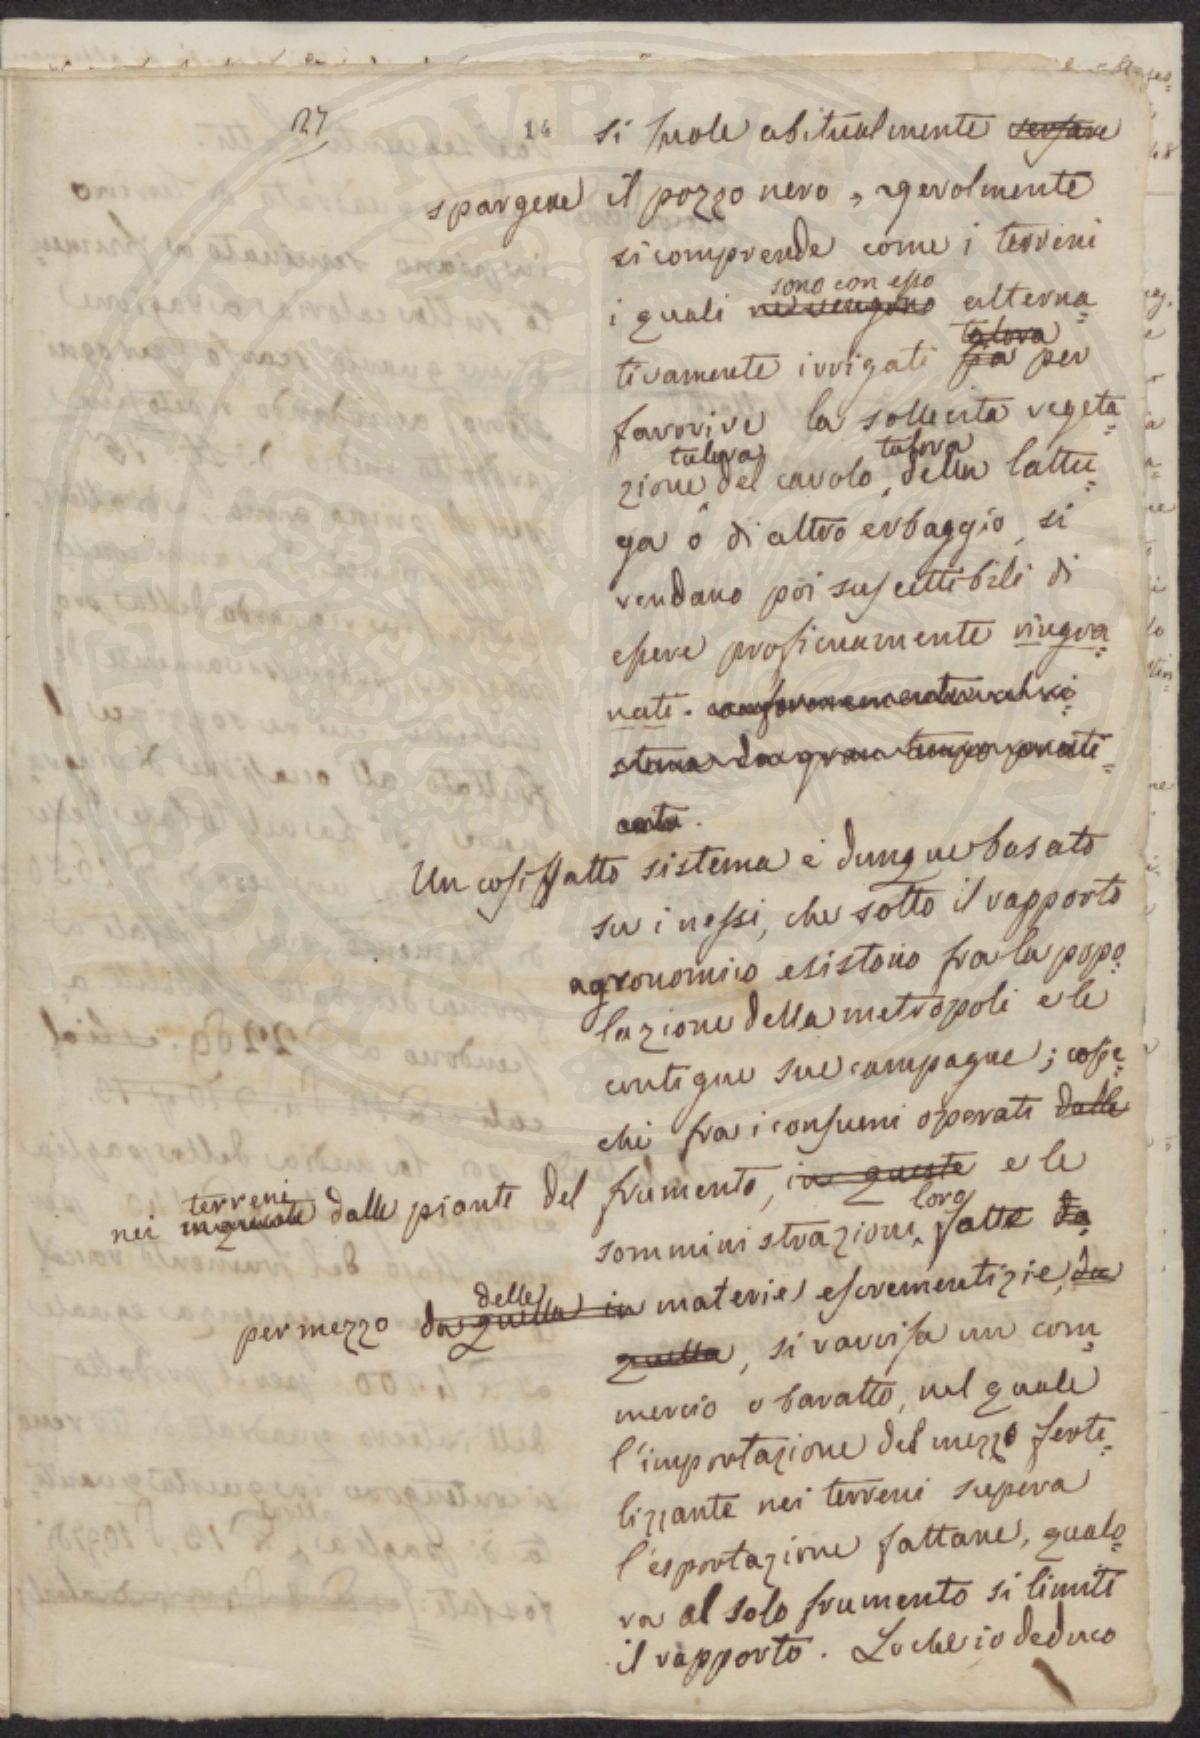 27
14
si suole abitualmente versare
spargere il pozzo nero, agevolmente
si comprende come i terreni
sono con esso
i quali ne vengono alterna=
talora
tivamente irrigati sia per
favorire la sollecita vegeta=
talora talora
zione del cavolo, della lattu=
ga ô di altro erbaggio, si
rendano poi suscettibili di
essere proficuamente ringra=
nati. conformemente al si=
stema da gran tempo prati=
cato.
Un cosiffatto sistema è dunque basato
su i nessi, che sotto il rapporto
agronomico esistono fra la popo=
lazione della metropoli e le
contigue sue campagne; cosic=
chè fra i consumi operati dalle
terreni
nei in queste dalle piante del frumento, in queste e le
loro
somministrazioni, fatte da
delle
per mezzo da quella in materie escrementizie, da
quella, si ravvisa un com=
mercio o baratto, nel quale
l'importazione del mezzo ferti=
lizzante nei terreni supera
l'esportazione fattane, qualo=
ra al solo frumento si limiti
il rapporto. Lo che io deduco